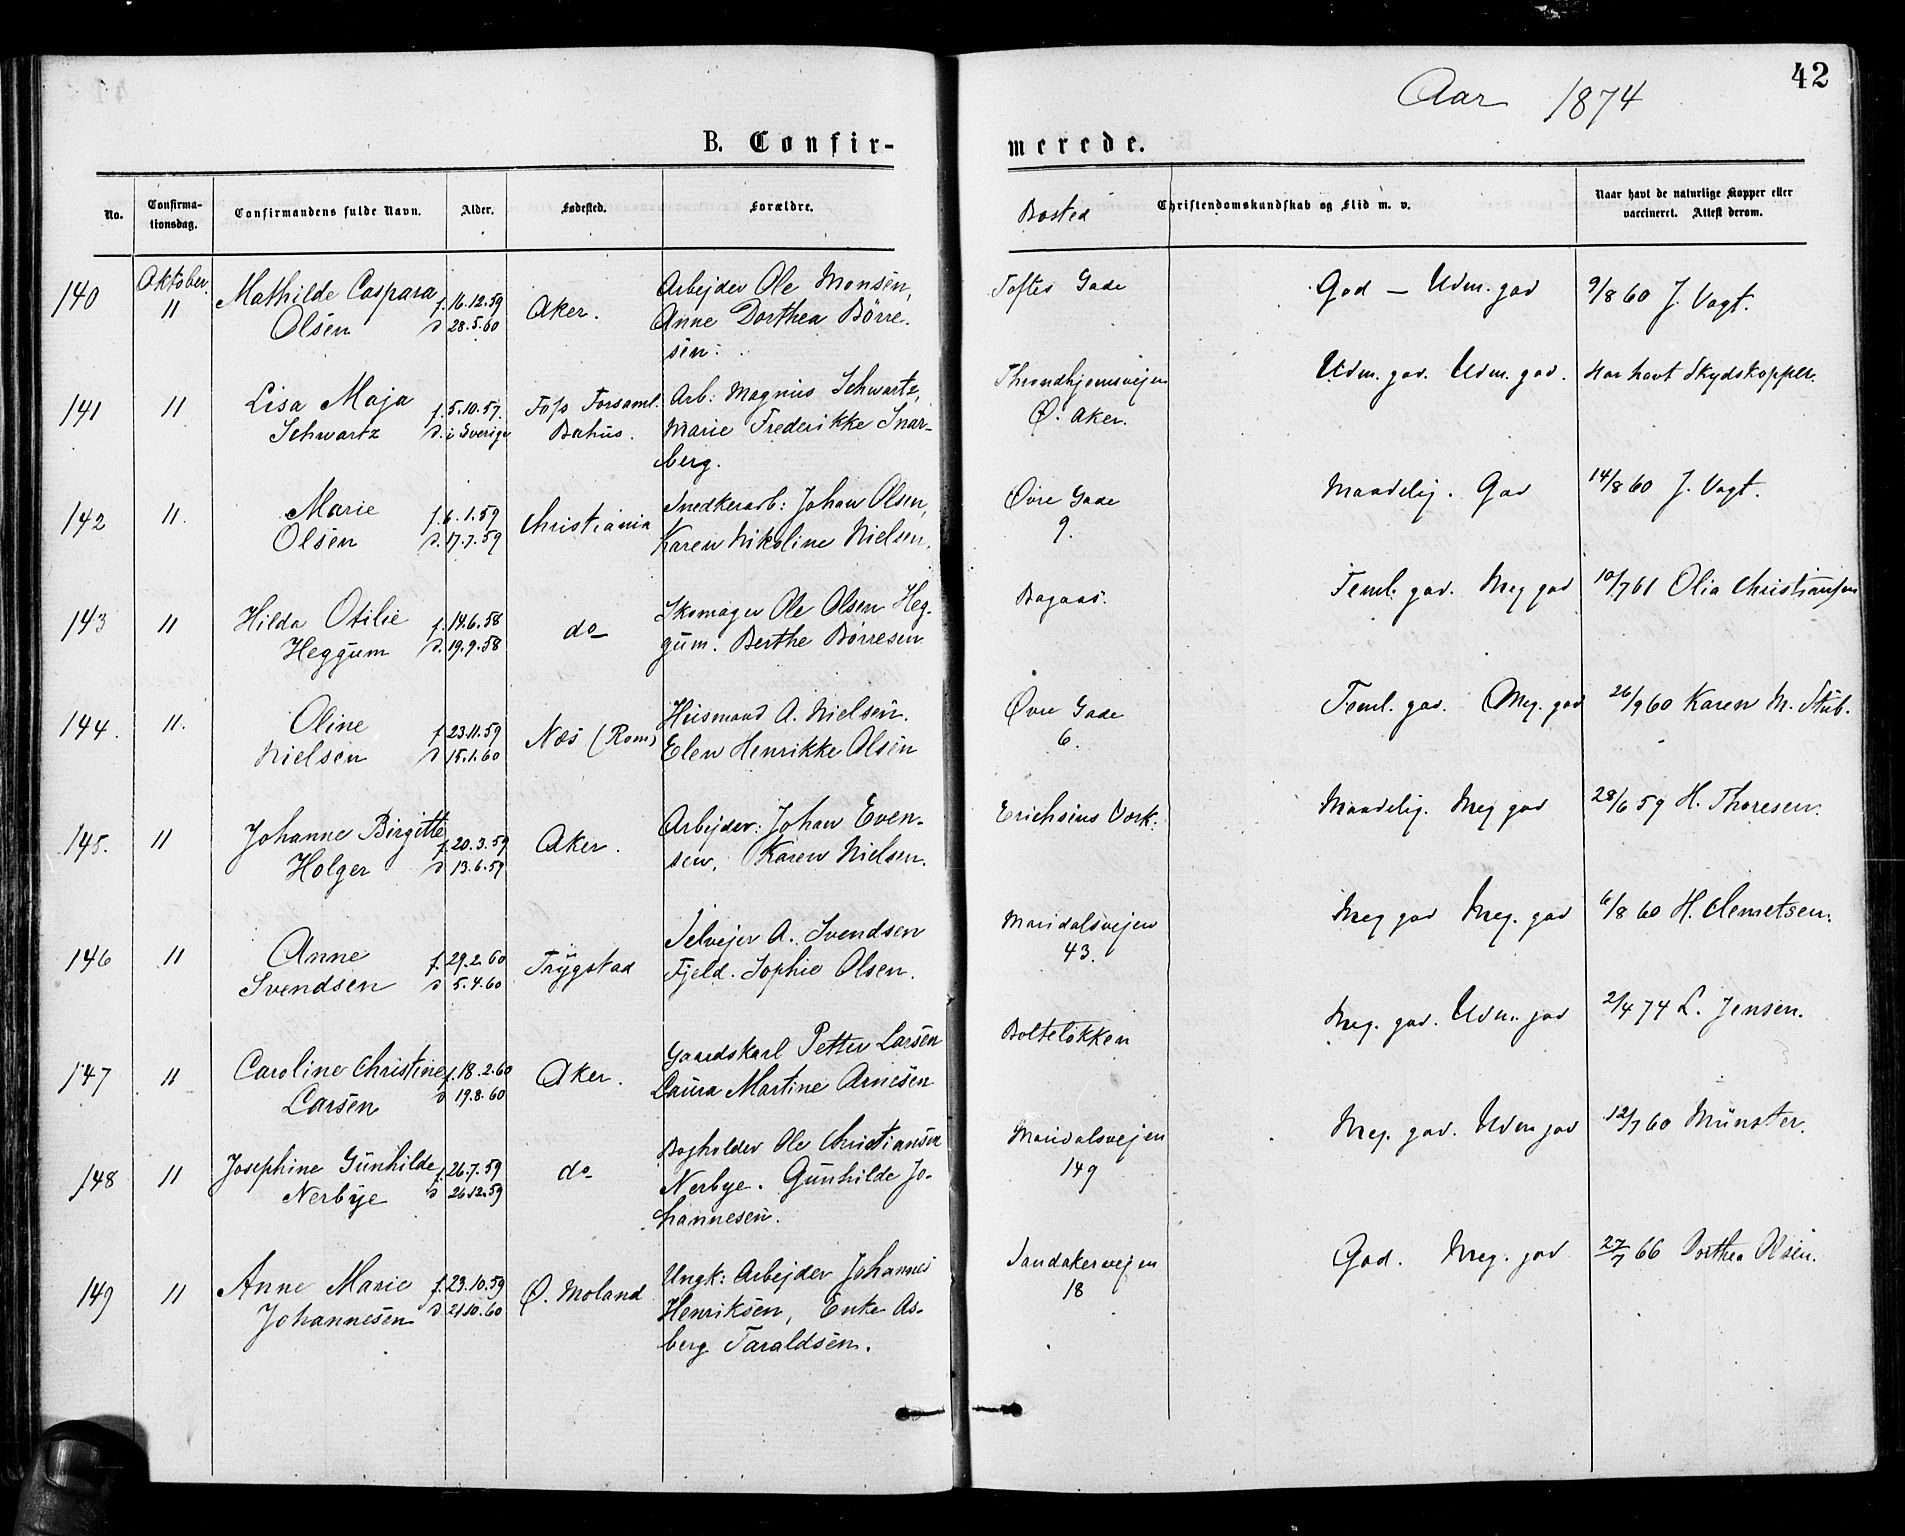 42
Aar 1874
B. Confir-
merede.
No.
Confirma-
tionsdag.
Confirmandens fulde Navn.
Alder.
Fødested.
Forældre.
Bosted
Christendomskundskab og Flid m. v.
Naar havt de naturlige Kopper eller
vaccineret. Attest derom.
140 Oktober 11 Mathilde Caspara f. 16.12.59 Aker. Arbejder Ole Monsen, Toftes Gade God — Udm. god 9/8 60 J. Vogt.
Olsen d 28.5.60 Anne Dorthea Børre-
sen.
141 11 Lisa Maja f. 5.10.57. Foss Forsaml. Arb: Magnus Schwartz, Throndhjemsvejen Udm. god. Udm. god. Har havt Skydskopper.
Schwartz d. i Sverige Bahus. Marie Frederikke Snar- Ø. Aker.
berg.
142 11. Marie f. 6.1.59 Christiania Snedkerarb: Johan Olsen, Øvre Gade Maadelig. God 14/8 60 J. Vogt.
Olsen d. 17.7.59 Karen Nikoline Nielsen. 9.
143 11 Hilda Otilie f. 14.6.58 do Skomager Ole Olsen Heg- Bagaas. Teml. god. Meg god 10/7 61 Olia Christiansen
Heggum d. 19.9.58 gum. Berthe Børresen
144. 11. Oline f. 23.11.59 Næs (Rom) Husmand A. Nielsen. Øvre Gade Teml. god. Meg. god 26/9 60 Karen M. Stub.
Nielsen d 15.1.60 Elen Henrikke Olsen 6.
145. 11 Johanne Birgitte f. 20.3.59 Aker. Arbejder: Johan Even- Erichsens Værk: Maadelig. Meg god 28/6 59 H. Thoresen.
Holger d 13.6.59 sen, Karen Nielsen.
146 11 Anne f. 29.2.60 Trygstad Selvejer A. Svendsen Maridalsvejen Meg god Meg. god 6/8 60 H. Clemetsen.
Svendsen d 5.4.60 Fjeld. Sophie Olsen. 43.
147 11 Caroline Christine f. 18.2.60 Aker. Gaardskarl Petter Larsen Bolteløkken Meg. god. Udm. god 2/4 74 L. Jensen.
Larsen d 19.8.60 Laura Martine Arnesen
148 11 Josephine Gunhilde f. 26.7.59 do Bogholder Ole Christiansen Maridalsvejen Meg. god. Udm god 12/7 60 Münster.
Nerbye d 26.12.59 Nerbye. Gunhilde Jo- 149
hannesen.
149 11 Anne Marie f. 23.10.59 Ø. Moland Ungk: Arbejder Johannes Sandakervejen God. Meg. god 27/7 66 Dorthea Olsen.
Johannesen d 21.10.60 Henriksen, Enke As- 18
berg Taraldsen.